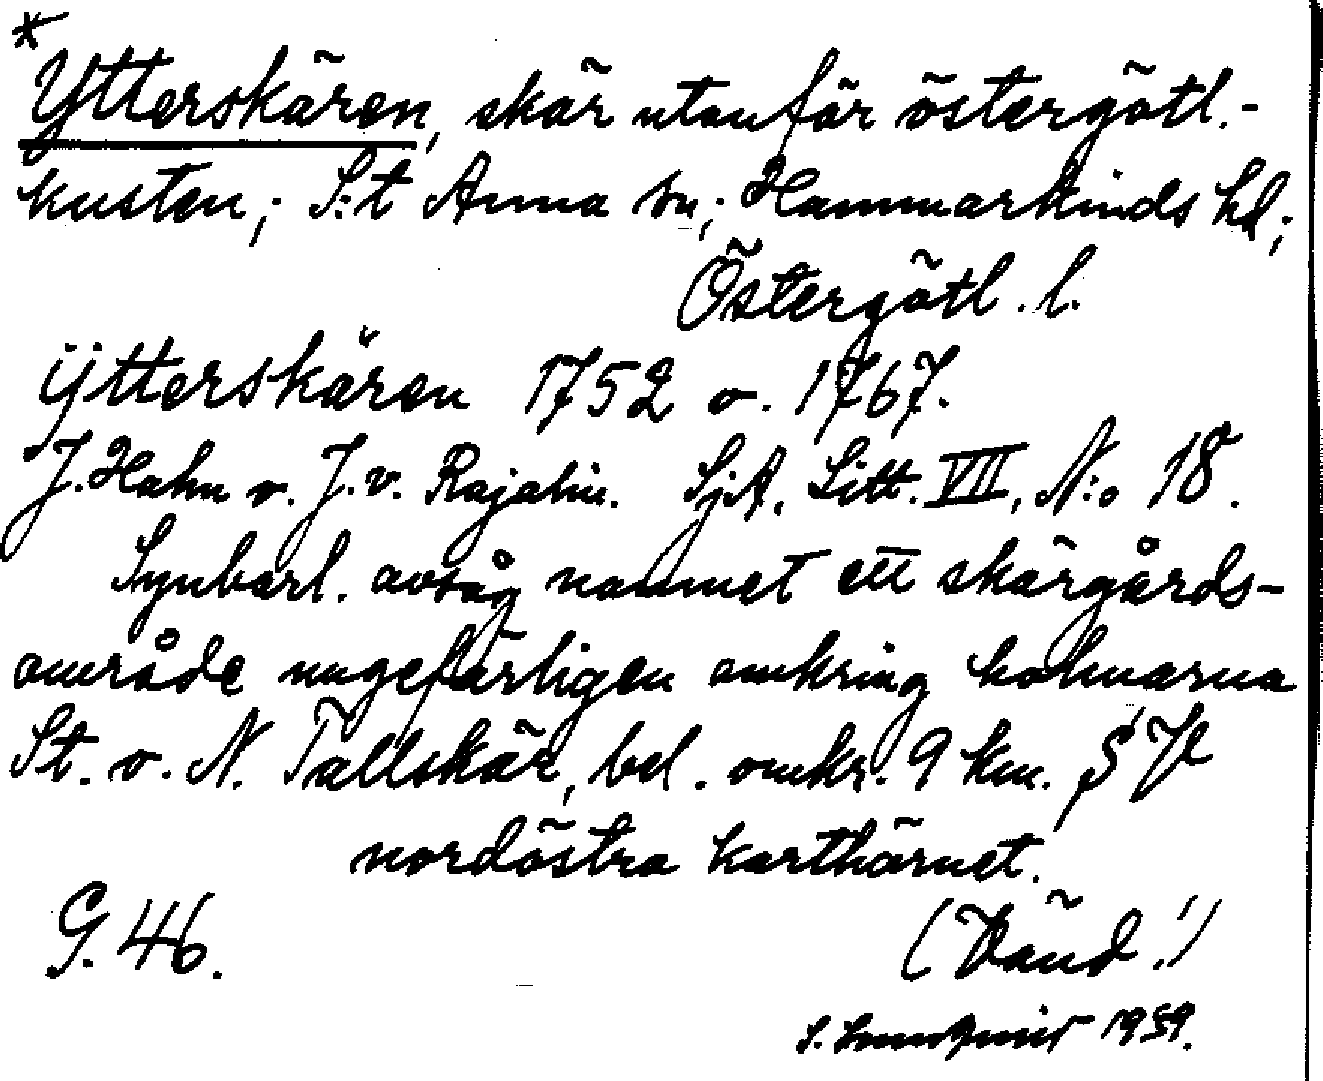 *
Ytterskären, skär utanför östergötl.-
kusten; S:t Anna sn; Hammarkinds hd;
Östergötl. l.
ÿtterskären 1752 o. 1767.
J. Hahn o. J. v. Rajalin. SjA, Litt. VII, N:o 18.
Synbarl. avsåg namnet ett skärgårds-
område ungefärligen omkring holmarna
St. o. N. Tallskär, bel. omkr. 9 km. S
nordöstra karthörnet.
G. 46. (Vänd!)
S. 1959.